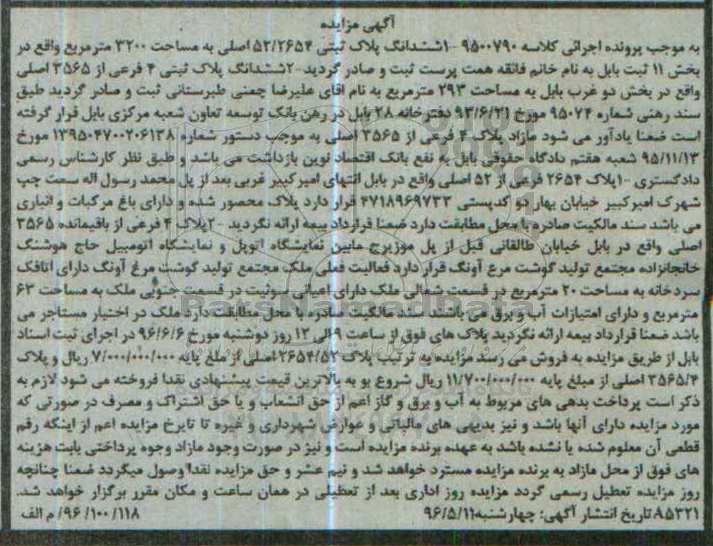 آگهی مزایده
به موجب پرونده اجرائی کلاسه ۹۵۰۰۷۹۰ -۱ششدانگ پلاک ثبتی ۵۲/۲۶۵۴ اصلی به مساحت ۳۲۰۰ مترمربع واقع در
بخش ۱۱ ثبت بابل به نام خانم فائقه همت پرست ثبت و صادر گردید-۲ششدانگ پلاک ثبتی ۴ فرعی از ۳۵۶۵ اصلی
واقع در بخش دو غرب بابل به مساحت ۲۹۳ مترمربع به نام اقای علیرضا چمنی طبرستانی ثبت و صادر گردید طبق
سند رهنی شماره ۹۵۰۷۴ مورخ ۹۳/۶/۲۱ دفترخانه ۲۸ بابل در رهن بانک توسعه تعاون شعبه مرکزی بابل قرار گرفته
است ضمنا یادآور می شود مازاد پلاک ۴ فرعی از ۳۵۶۵ اصلی به موجب دستور شماره ۱۳۹۵۰۴۷۰۰۲۰۶۱۳۸ مورخ
۹۵/۱۱/۱۳ شعبه هفتم دادگاه حقوقی بابل به نفع بانک اقتصاد نوین بازداشت می باشد و طبق نظر کارشناس رسمی
دادگستری -۱پلاک ۲۶۵۴ فرعی از ۵۲ اصلی واقع در بابل انتهای امیرکبیر غربی بعد از پل محمد رسول اله سمت چپ
شهرک امیرکبیر خیابان بهار دو کدپستی ۴۷۱۸۹۶۹۷۳۳ قرار دارد پلاک محصور شده و دارای باغ مرکبات و انباری
می باشد سند مالکیت صادره با محل مطابقت دارد ضمنا قرارداد بیمه ارائه نگردید -۲پلاک ۴ فرعی از باقیمانده ۳۵۶۵
اصلی واقع در بابل خیابان طالقانی قبل از پل موزیرج مابین نمایشگاه اتوپل و نمایشگاه اتومبیل حاج هوشنگ
خانجانزاده مجتمع تولید گوشت مرغ آونگ قرار دارد فعالیت فعلی ملک مجتمع تولید گوشت مرغ آونگ دارای اتافک
سردخانه به مساحت ۲۰ مترمربع در قسمت شمالی ملک دارای اعیانی سوئیت در قسمت جنوبی ملک به مساحت ۶۳
مترمربع و دارای امتیازات آب و برق می باشند سند مالکیت صادره با محل مطابقت دارد ملک در اختیار مستاجر می
باشد ضمنا قرارداد بیمه ارائه نگردید پلاک های فوق از ساعت ۹ الی ۱۲ روز دوشنبه مورخ ۹۶/۶/۶ در اجرای ثبت اسناد
بابل از طریق مزایده به فروش می رسد مزایده به ترتیب پلاک ۲۶۵۴/۵۲ اصلی از ملغ پایه ۷/۰۰۰/۰۰۰/۰۰۰ ریال و پلاک
۳۵۶۵/۴ اصلی از مبلغ پایه ۱۱/۷۰۰/۰۰۰/۰۰۰ ریال شروع بو به بالاترین قیمت پیشنهادی نقدا فروخته می شود لازم به
ذکر است پرداخت بدهی های مربوط به آب و برق و گاز اعم از حق انشعاب و یا حق اشتراک و مصرف در صورتی که
مورد مزایده دارای آنها باشد و نیز بدیهی های مالیاتی و عوارض شهرداری و غیره تا تایرخ مزایده اعم از اینکه رقم
قطعی آن معلوم شده یا نشده باشد به عهده برنده مزایده است و نیز در صورت وجود مازاد وجوه پرداختی بابت هزینه
های فوق از محل مازاد به برنده مزایده مسترد خواهد شد و نیم عشر و حق مزایده نقدا وصول میگردد ضمنا چنانچه
روز مزایده تعطیل رسمی گردد مزایده روز اداری بعد از تعطیلی در همان ساعت و مکان مقرر برگزار خواهد شد.
۸۵۳۲۱ تاریخ انتشار آگهی: چهارشنبه ۹۶/۵/۱۱ ۹۶/۱۰۰/۱۱۸ م الف